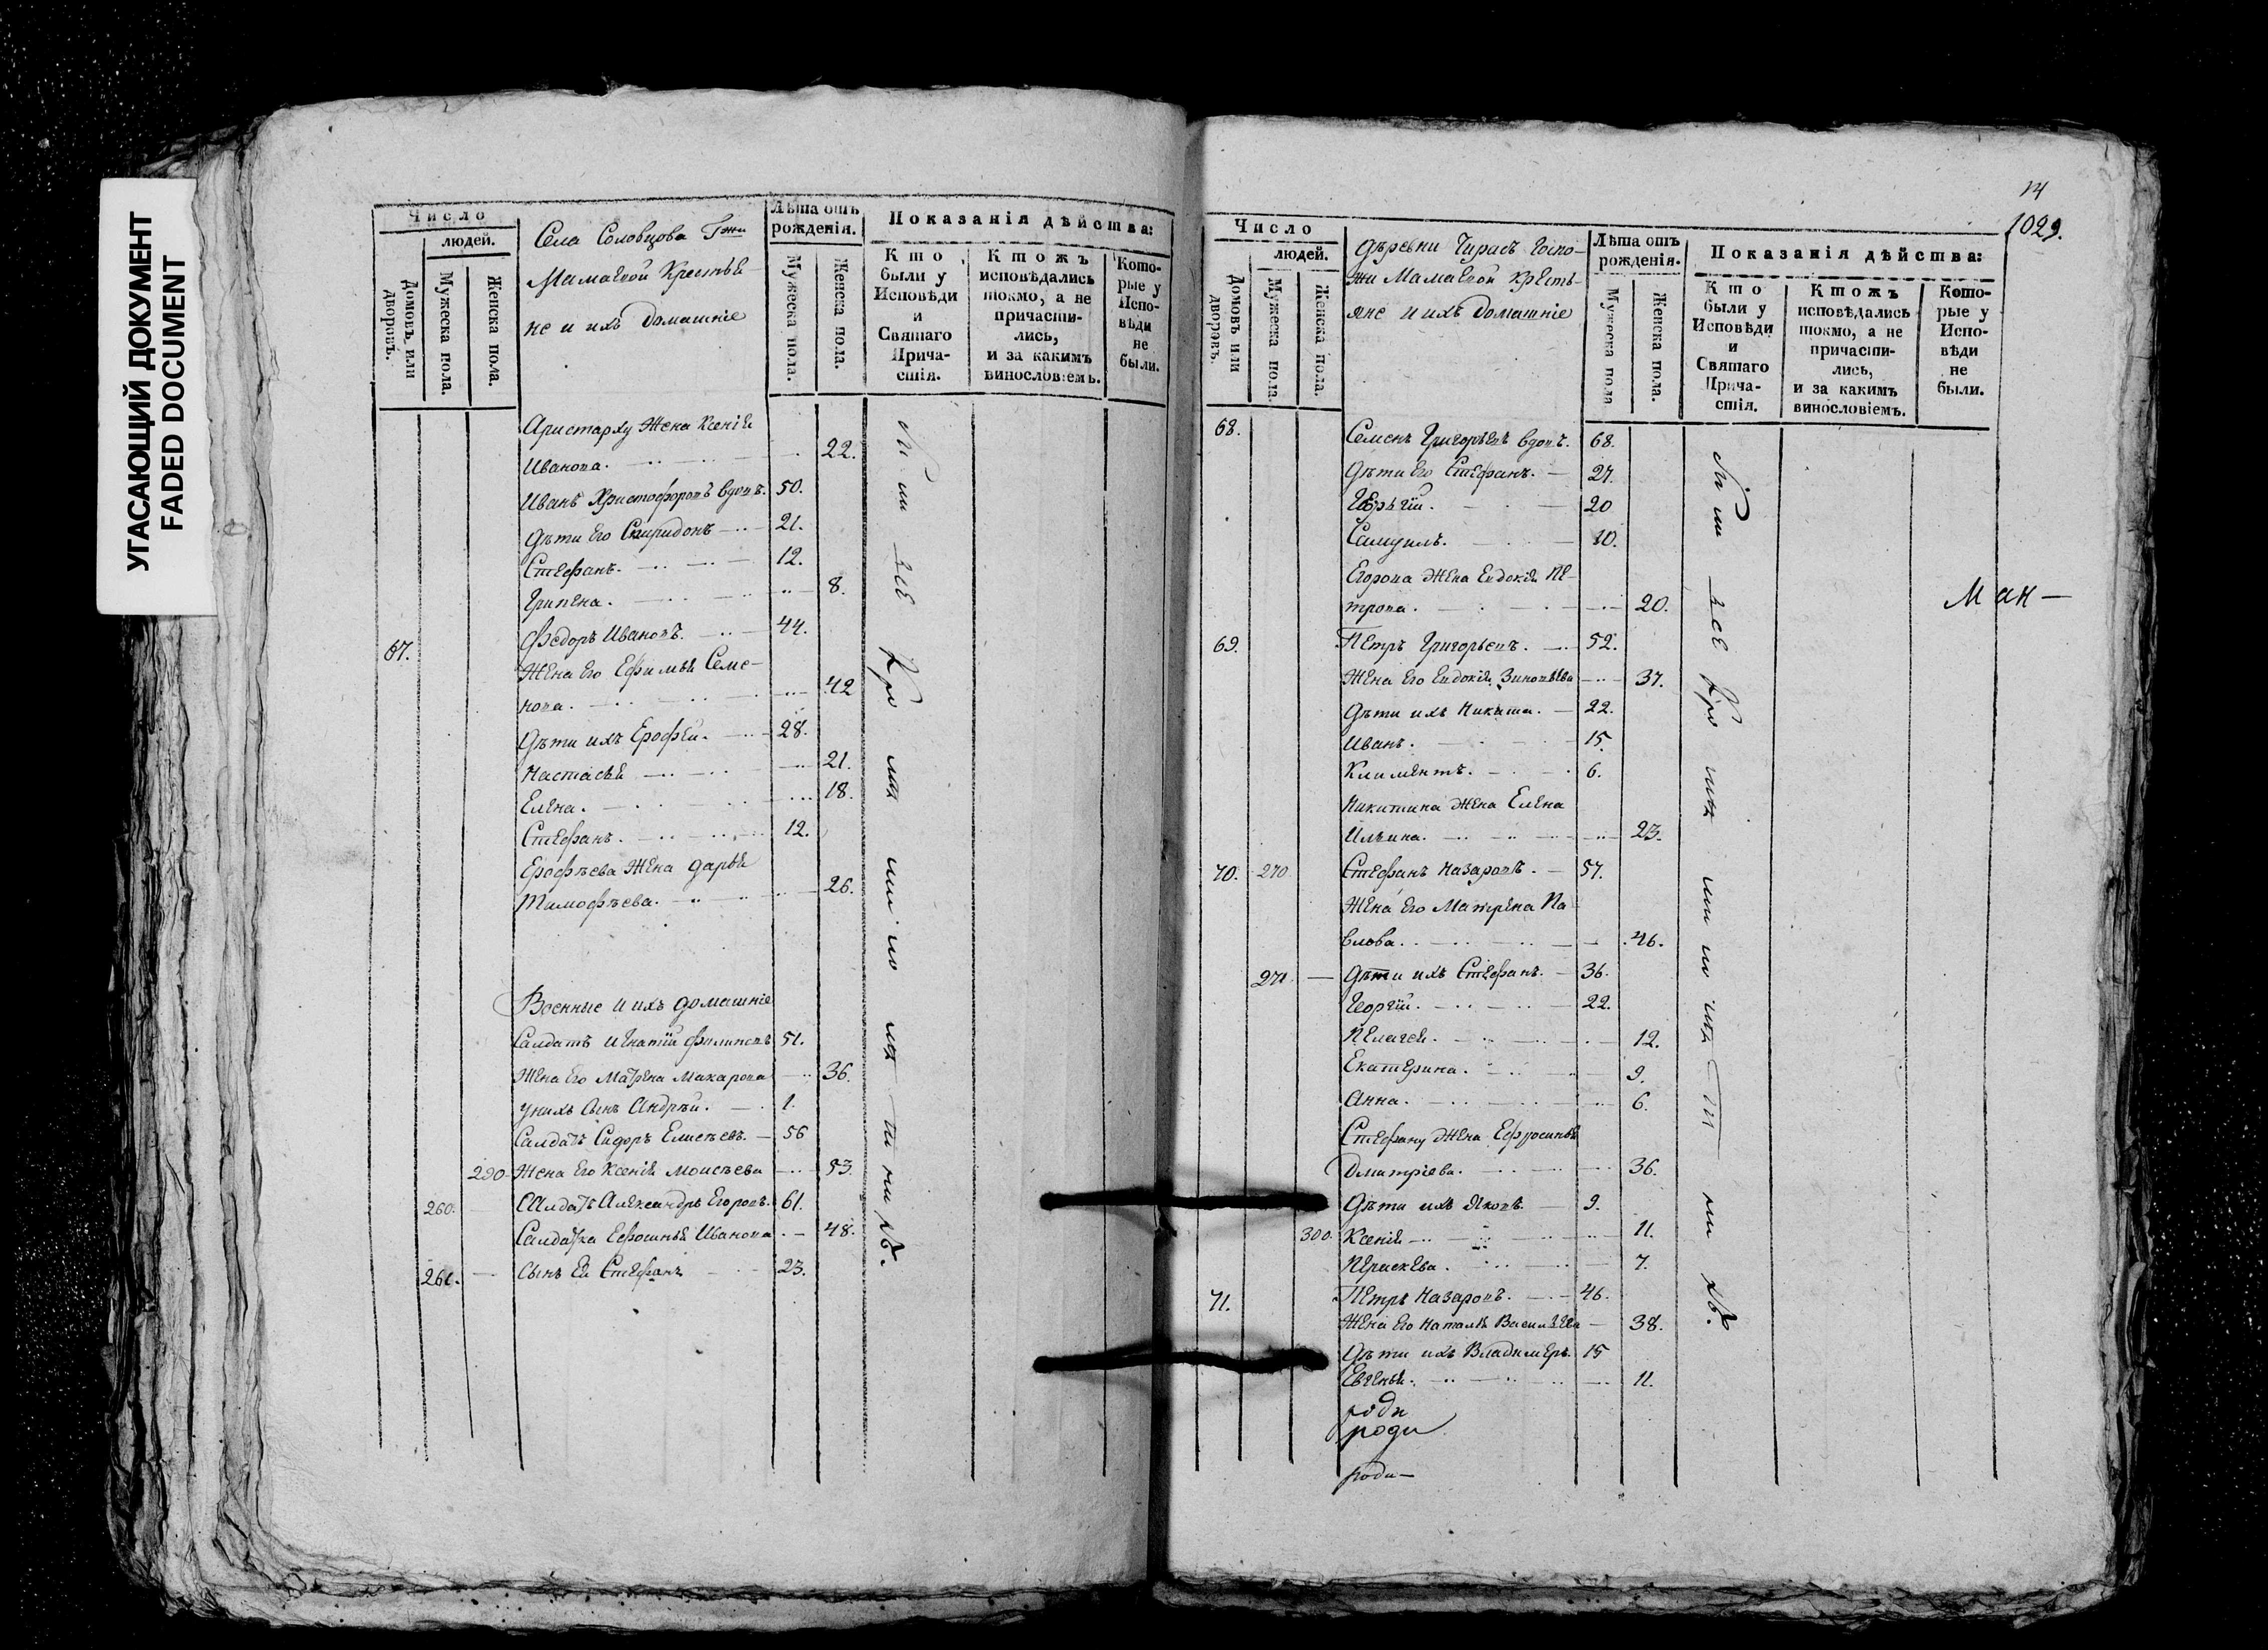 УГАСАЮЩИЙ ДОКУМЕНТ
FADED DOCUMENT
Число
людей.
Домовъ, или дворовъ.
Мужеска пола.
Женска пола.
Села Соловцова Гжи
Мамаевой Крестья-
не и ихъ домашніе
Лѣта отъ рожденія.
Мужеска пола.
Женска пола.
Показанія дѣйства:
Кто были у Исповѣди и Святаго Причастія.
Ктожъ исповѣдались токмо, а не причастились, и за какимъ винословіемъ.
Которые у Исповѣди не были.
Аристарху жена Ксенія
Иванова. 22.
Иванъ Христофоровъ вдовъ. 50.
Дѣти его Спиридонъ 21.
Стефанъ. 12.
Грипена. 8.
67. Федоръ Ивановъ. 44.
Жена его Ефимья Семе-
нова. 42
Дѣти ихъ Ерофей. 28.
Настасья 21.
Елена. 18.
Стефанъ. 12.
Ерофѣева жена Дарья
Тимофѣева. 26.
Военные и ихъ домашніе
Салдатъ Игнатій Филиповъ 51.
Жена его Матрена Макарова 36.
У нихъ сынъ Андрей. 1.
Салдатъ Сидоръ Елисѣевъ. 56
290 Жена его Ксенія Моисѣева 53.
260. Салдатъ Александръ Егоровъ. 61.
Салдатка Ефросинья Иванова 48.
261. Сынъ ея Стефанъ 23.
14
1029.
Число
людей.
Домовъ или дворовъ.
Мужеска пола.
Женска пола.
Деревни Чирасъ Госпо-
жи Мамаевой Кресть-
яне и ихъ домашніе
Лѣта отъ рожденія.
Мужеска пола
Женска пола.
Показанія дѣйства:
Кто были у Исповѣди и Святаго Причастія.
Ктожъ исповѣдались токмо, а не причастились, и за какимъ винословіемъ.
Которые у Исповѣди не были.
68. Семенъ Григорьевъ вдовъ. 68.
Дѣти его Стефанъ. 27.
Георгій. 20
Самуилъ. 10.
Егорова жена Евдокія Пе-
трова. 20.
Ман
69. Петръ Григорьевъ. 52.
Жена его Евдокія Зиновьева 37.
Дѣти ихъ Никита. 22.
Иванъ. 15.
Климентъ. 6.
Никитина жена Елена
Ильина. 23.
70. 270 Стефанъ Назаровъ. 57.
Жена его Матрена Па
влова. 46.
271. Дѣти ихъ Стефанъ. 36.
Георгій. 22.
Пелагея. 12.
Екатерина. 9.
Анна. 6.
Стефану жена Ефросинья
Дмитріева. 36.
Дѣти ихъ Яковъ. 9.
300. Ксенія 11.
Перасkева. 7.
71. Петръ Назаровъ. 46.
Жена его Наталья Васильева 38.
Дѣти ихъ Владимеръ. 15
Евгенья. 11.
роди
роди
роди